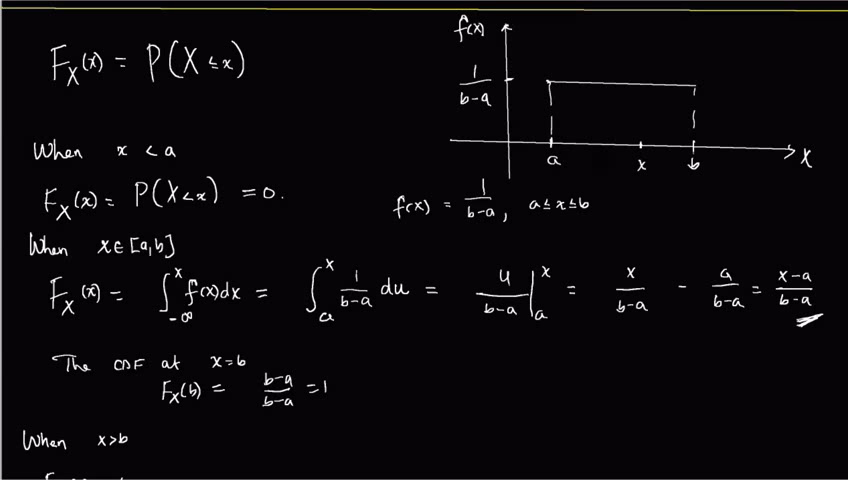 F_X(x) = P(X ≤ x)
f(x)
1/(b-a)
a x b X
When x < a
F_X(x) = P(X<x) = 0.
f(x) = 1/(b-a), a ≤ x ≤ b
When x ∈ [a,b]
F_X(x) = ∫_{-∞}^{x} f(x)dx = ∫_a^x 1/(b-a) du = u/(b-a) |_a^x = x/(b-a) - a/(b-a) = (x-a)/(b-a)
The CDF at x=b
F_X(b) = (b-a)/(b-a) = 1
When x>b